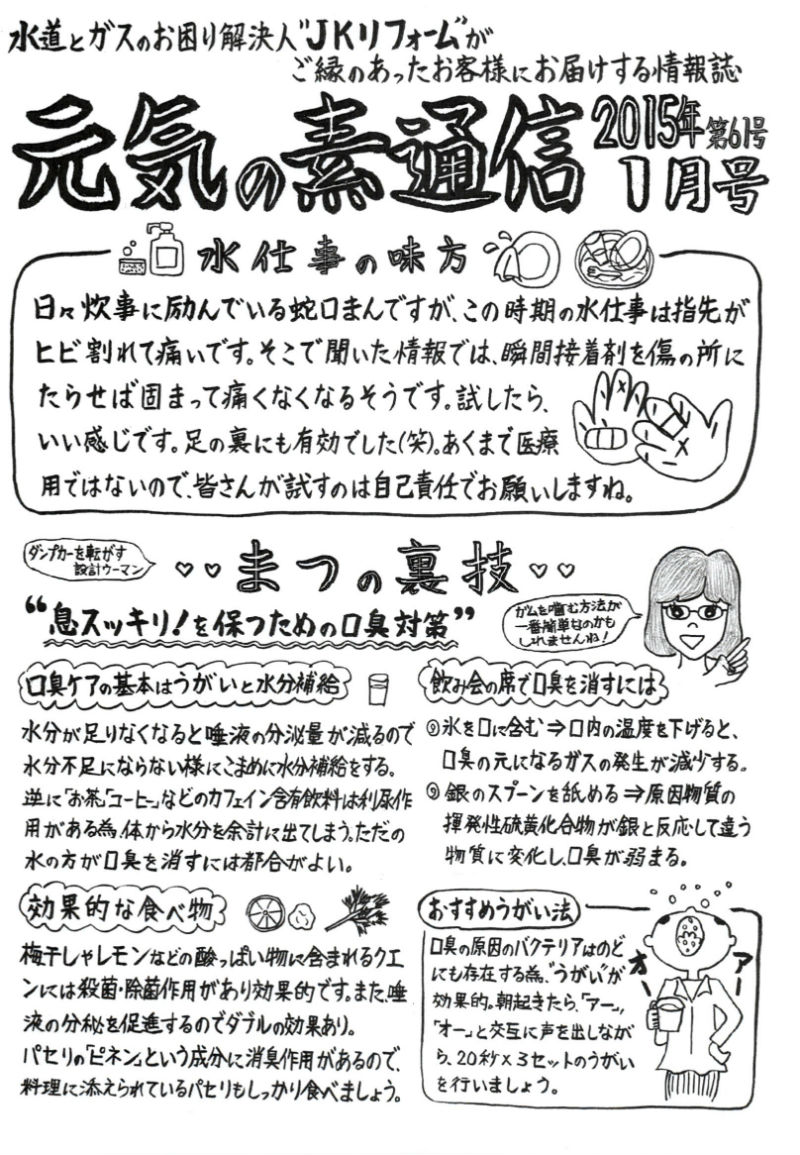 水道とガスのお困り解決人"JKリフォーム"が
ご縁のあったお客様にお届けする情報誌
元気の素通信
2015年 第61号
1月号
水仕事の味方
日々炊事に励んでいる蛇口まんですが、この時期の水仕事は指先が
ヒビ割れて痛いです。そこで聞いた情報では、瞬間接着剤を傷の所に
たらせば固まって痛くなくなるそうです。試したら、
いい感じです。足の裏にも有効でした(笑)。あくまで医療
用ではないので、皆さんが試すのは自己責任でお願いしますね。
ダンプカーを転がす
設計ウーマン
♡♡まつの裏技♡♡
"息スッキリ!を保つための口臭対策"
ガムを噛む方法が
一番簡単なのかも
しれませんね!
口臭ケアの基本はうがいと水分補給
水分が足りなくなると唾液の分泌量が減るので
水分不足にならない様にこまめに水分補給をする。
逆に「お茶」「コーヒー」などのカフェイン含有飲料は利尿作
用がある為、体から水分を余計に出てしまう。ただの
水の方が口臭を消すには都合がよい。
飲み会の席で口臭を消すには
氷を口に含む⇒口内の温度を下げると、
口臭の元になるガスの発生が減少する。
銀のスプーンを舐める⇒原因物質の
揮発性硫黄化合物が銀と反応して違う
物質に変化し、口臭が弱まる。
効果的な食べ物
梅干しゃレモンなどの酸っぱい物に含まれるクエ
ンには殺菌・除菌作用があり効果的です。また、唾
液の分秘を促進するのでダブルの効果あり。
パセリの「ピネン」という成分に消臭作用があるので、
料理に添えられているパセリもしっかり食べましょう。
おすすめうがい法
口臭の原因のバクテリアはのど
にも存在する為、"うがい"が
効果的。朝起きたら、「アー」、
「オー」と交互に声を出しなが
ら、20秒×3セットのうがい
を行いましょう。
オー
アー